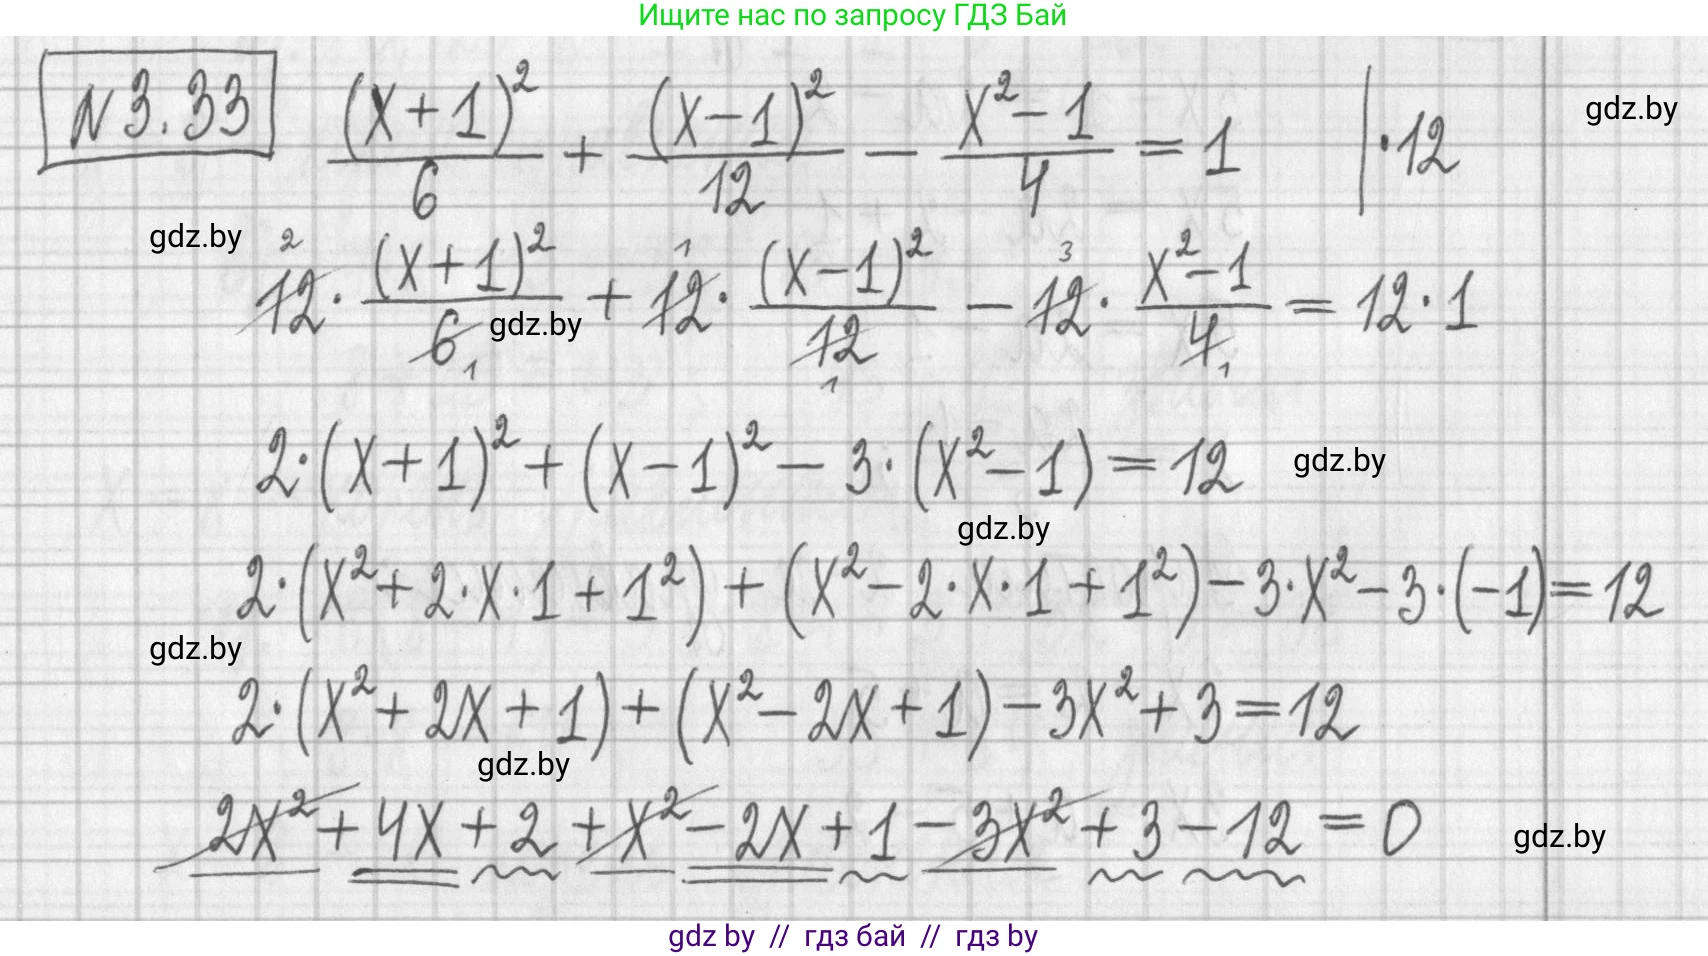 Ищите нас по запросу ГДЗ Бай
N 3.33 (x+1)²/6 + (x-1)²/12 - x²-1/4 = 1 | ·12
gdz.by
gdz.by
2 1 3
12 · (x+1)²/6 + 12 · (x-1)²/12 - 12 · x²-1/4 = 12 · 1
gdz.by
1 1 1
2·(x+1)² + (x-1)² - 3·(x²-1) = 12
gdz.by
gdz.by
2·(x²+2·x·1+1²) + (x²-2·x·1+1²) - 3·x² - 3·(-1) = 12
gdz.by
2·(x²+2x+1) + (x²-2x+1) - 3x² + 3 = 12
gdz.by
2x² + 4x + 2 + x² - 2x + 1 - 3x² + 3 - 12 = 0
gdz.by
gdz by // гдз бай // гдз by